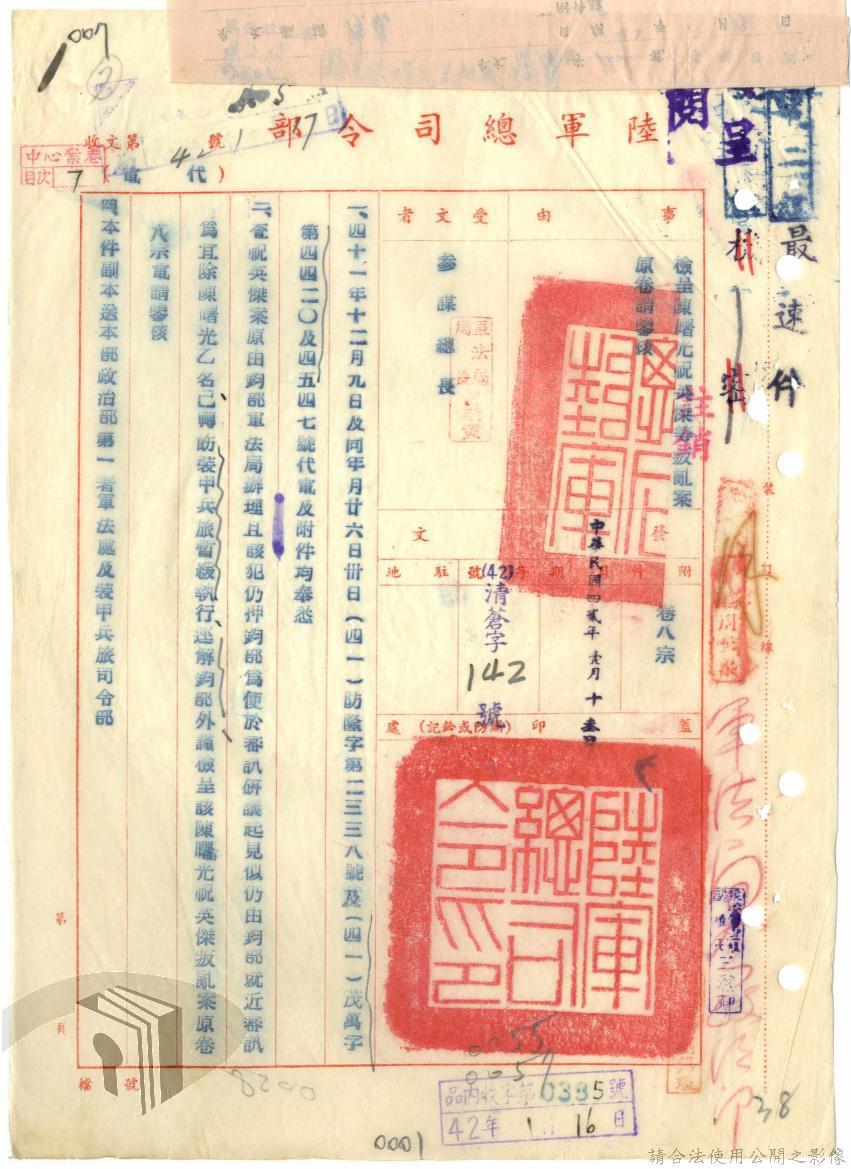 陸軍總司令部
(代電)
收文第 號
中心案卷
目次 7
007
42 1 17日
最速件
機密
註銷
呈
閱
事由
檢呈陳曙光祝英傑等叛亂案
原卷請鑒核
受文者
參謀總長
附件
卷八宗
發文
日期
中華民國四貳年壹月十叁日
字號
(42)清蒼字
142
號
駐地
蓋印(關防或鈐記)處
陸軍總司令印
一、四十一年十二月九日及同年月廿六日卅日(四一)防隆字第二三三八號及(四一)茂萬字
第四四二〇及四五四七號代電及附件均奉悉
二、查祝英傑案原由鈞部軍法局辦理且該犯仍押鈞部為便於審訊研議起見似仍由鈞部就近審訊
為宜除陳曙光乙名已轉飭裝甲兵旅暫緩執行、逕解鈞部外謹檢呈該陳曙光祝英傑叛亂案原卷
八宗電請鑒核
四、本件副本送本部政治部第一署軍法處及裝甲兵旅司令部
裝訂線
第 頁
檔號
0028
0055
0057
品內收字第0335號
42年1月16日
0001
38
請合法使用公開之影像